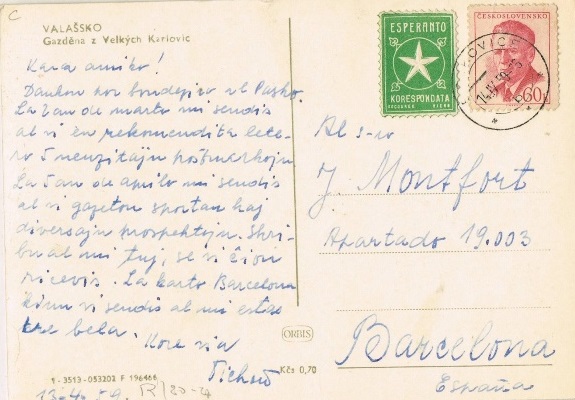 VALAŠSKO
Gazděna z Velkých Karlovic
Kara amiko!
Dankon kor bondeziro al Pasko.
La 7an de marto mi sendis
al vi en rekomendita lete-
ro 5 neuzitajn postmarkojn.
La 7an de aprilo mi sendis
al vi gazeton sportan kaj
diversajn prospektojn. Skri-
bu al mi tuj, se vi ĉion
ricevis. La karto Barcelona
kiun vi sendis al mi estas
tre bela. Kore via
1-3513-053202 F 196466
13.4.59.
ESPERANTO
KORESPONDATA
ČESKOSLOVENSKO
60
Al s-ro
J. Montfort
Apartado 19.003
Barcelona
España
ORBIS
Kčs 0,70